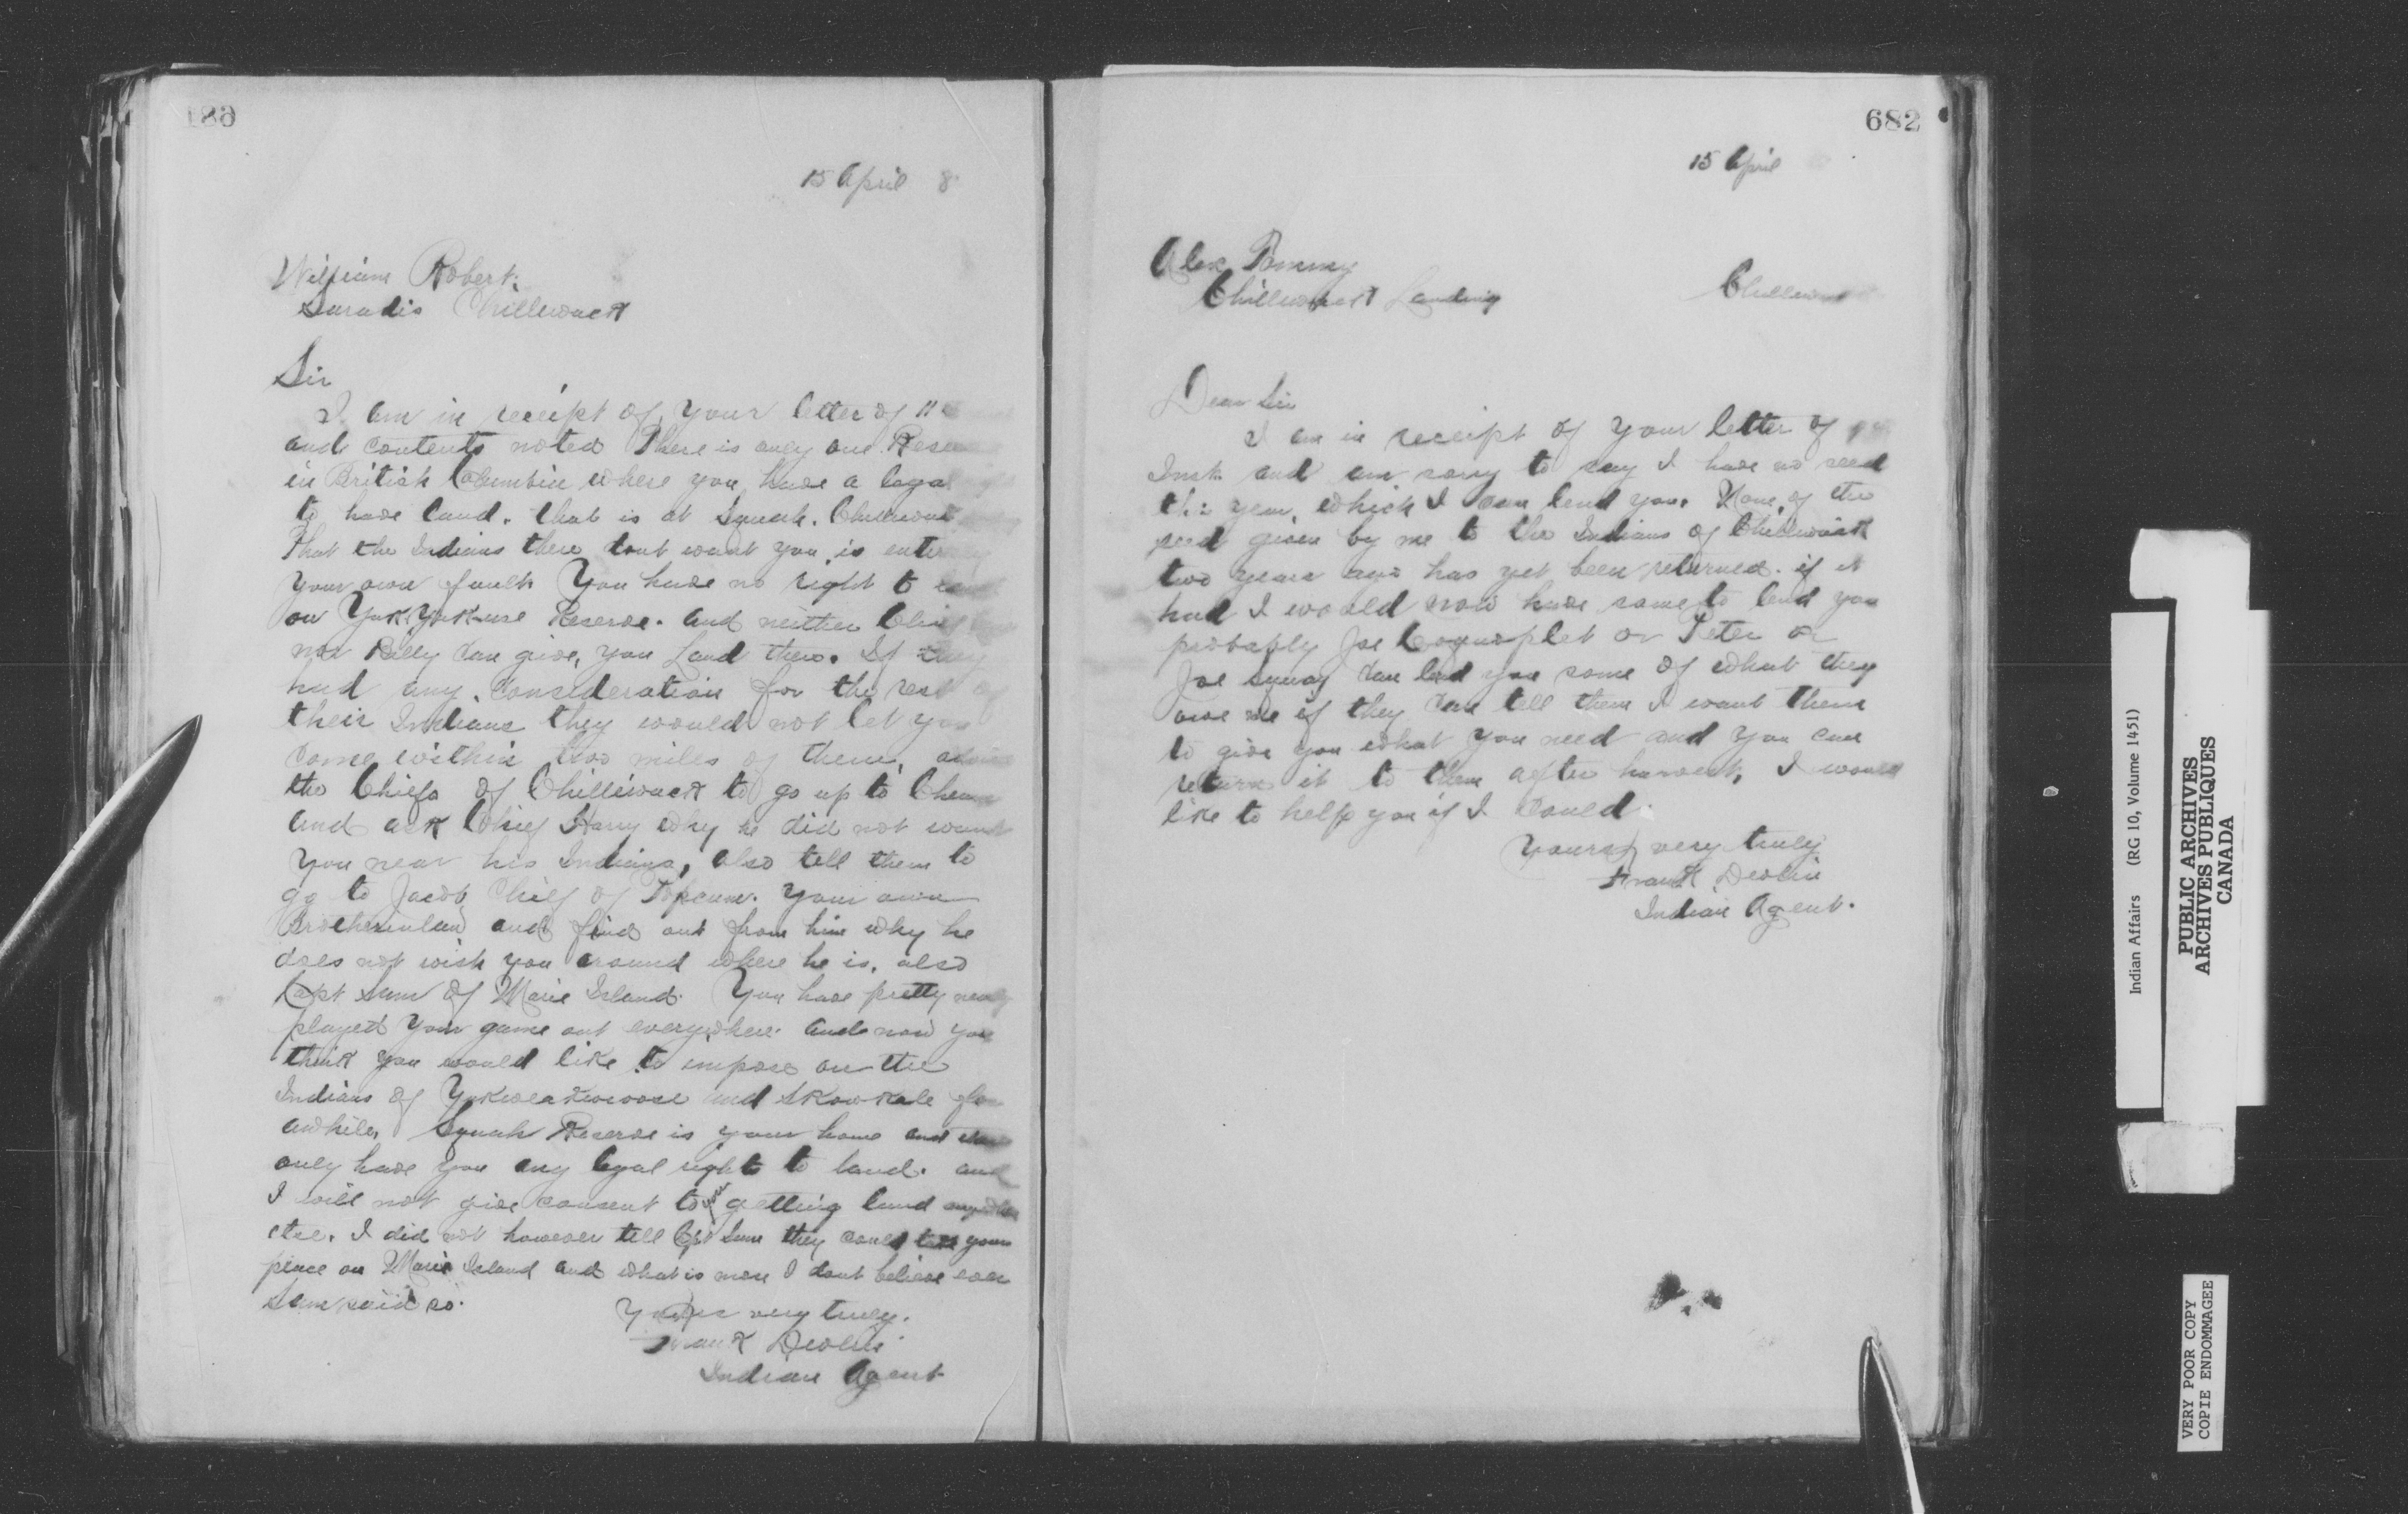 186
15 April 8
William Robert
Sardis Chilliwack
Sir
I am in receipt of your letter of 11
and contents noted There is only one Rese
in British Columbia where you have a legal
to have land. that is at Squah. Chilliwack
That the Indians there dont want you is entirely
your own fault You have no right to
on YukYukuse Reserve. and neither Chief
nor Billy can give, you Land there. If they
had any consideration for the rest of
their Indians they would not let you
come within two miles of them,
the Chiefs of Chilliwack to go up to Cheam
and ask Chief Harry why he did not want
you near his Indians, also tell them to
go to Jacob Chief of Popcum. Your own
Brotherinlaw and find out from him why he
does not wish you around where he is. also
Capt Sam of Maria Island. You have pretty nearly
played your game out everywhere and now you
think you would like to impose on the
Indians of Yukweakwoose and Skowkale for
awhile, Squah Reserve is your home and there
only have you any legal right to land. and
I will not give consent to your getting land anywhere
else. I did not however tell Capt Sam they could take your
place on Maria Island and what is more I dont believe ever
Sam said so.
Yours very truly.
Frank Devlin
Indian Agent
682
15 April
Alex Tommy
Chilliwack Landing
Chilliwack
Dear Sir
I am in receipt of your letter of
Inst. and am sorry to say I have no seed
this year, which I can lend you. None of the
seed given by me to the Indians of Chilliwack
two years ago has yet been returned. if it
had I would now have some to lend you
probably Joe or Peter or
Joe Squay can lend you some of what they
owe me if they can tell them I want them
to give you what you need and you can
return it to them after harvest, I would
like to help you if I could.
Yours very truly
Frank Devlin
Indian Agent.
Indian Affairs (RG 10, Volume 1451)
PUBLIC ARCHIVES
ARCHIVES PUBLIQUES
CANADA
VERY POOR COPY
COPIE ENDOMMAGEE